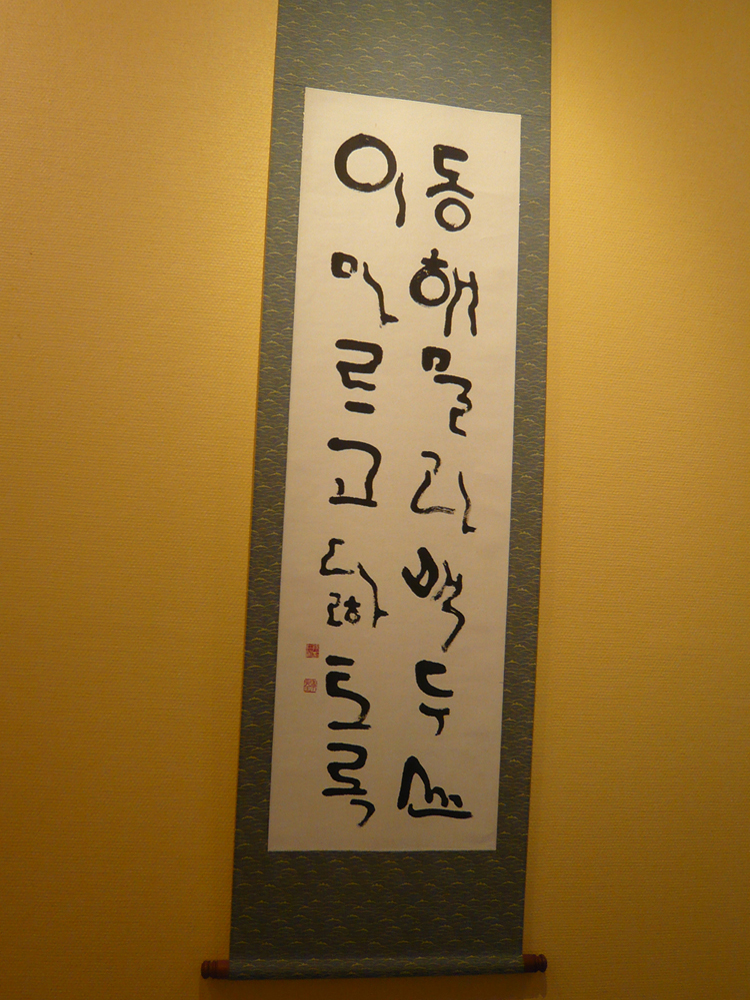 동해물과백두산
이마르고닳도록